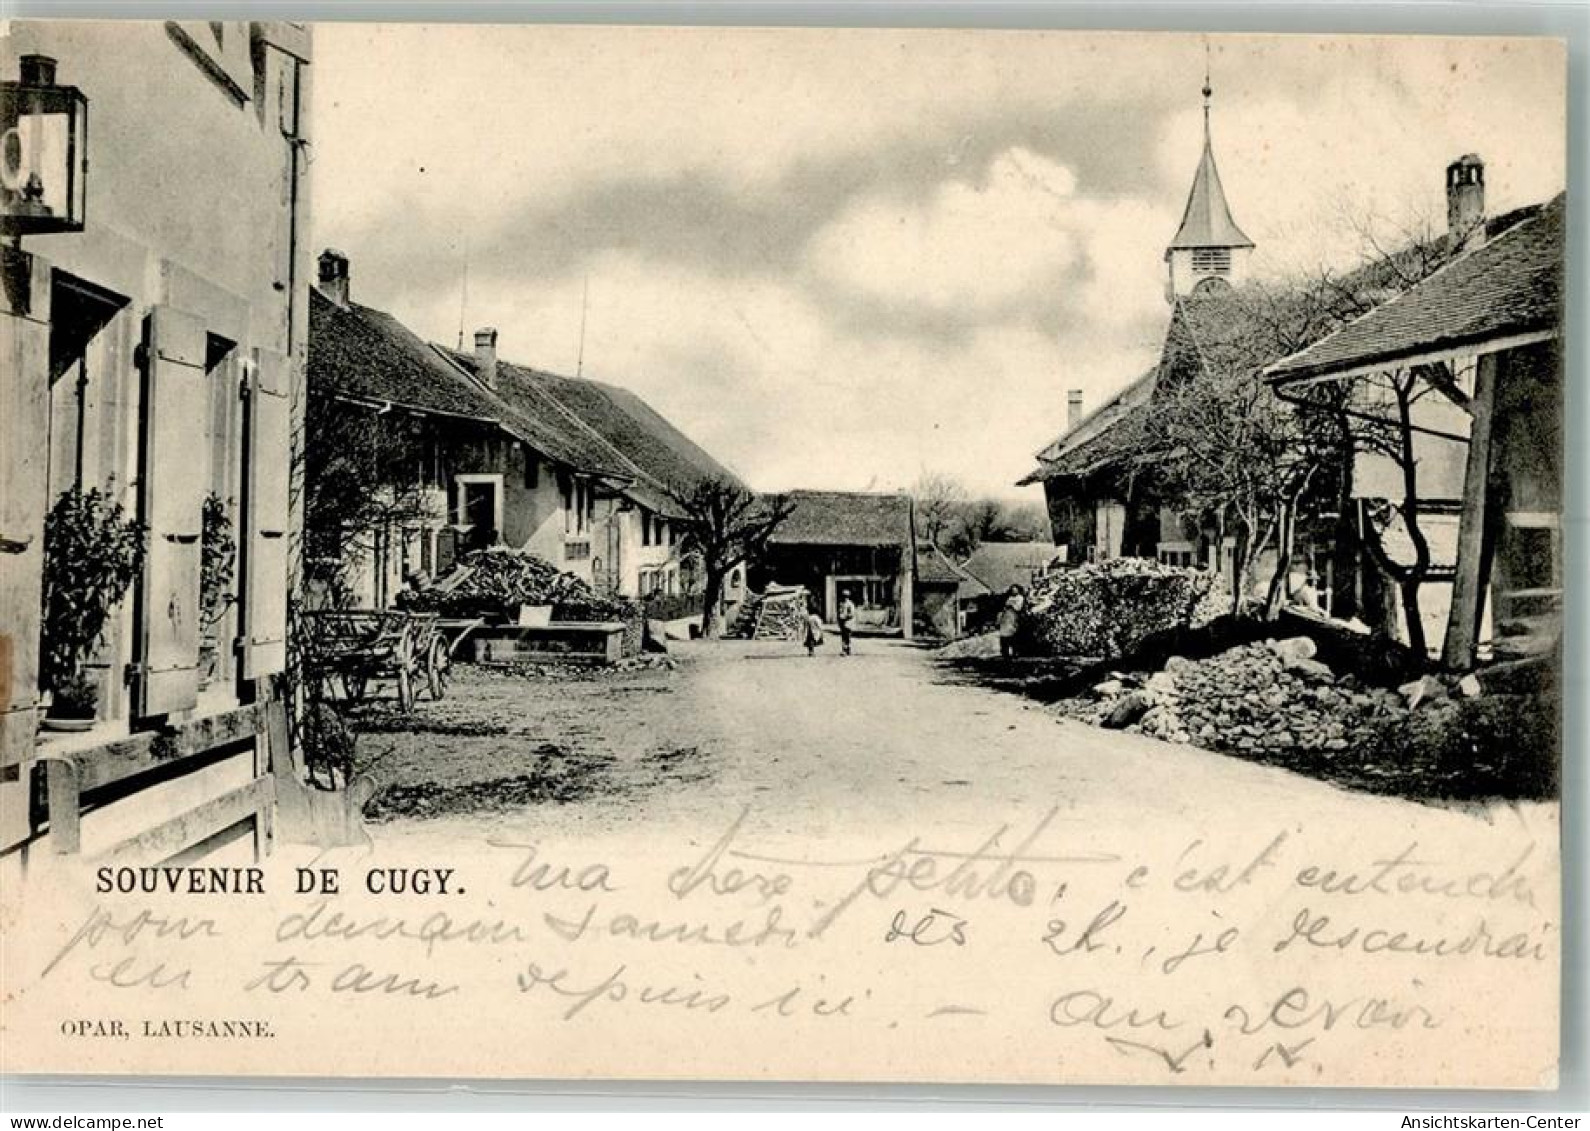 SOUVENIR DE CUGY. Ma chère petite, c'est entendu
pour demain Samedi dès 2h., je descendrai
en tram depuis ici. — Au revoir
OPAR, LAUSANNE.
www.delcampe.net
Ansichtskarten-Center